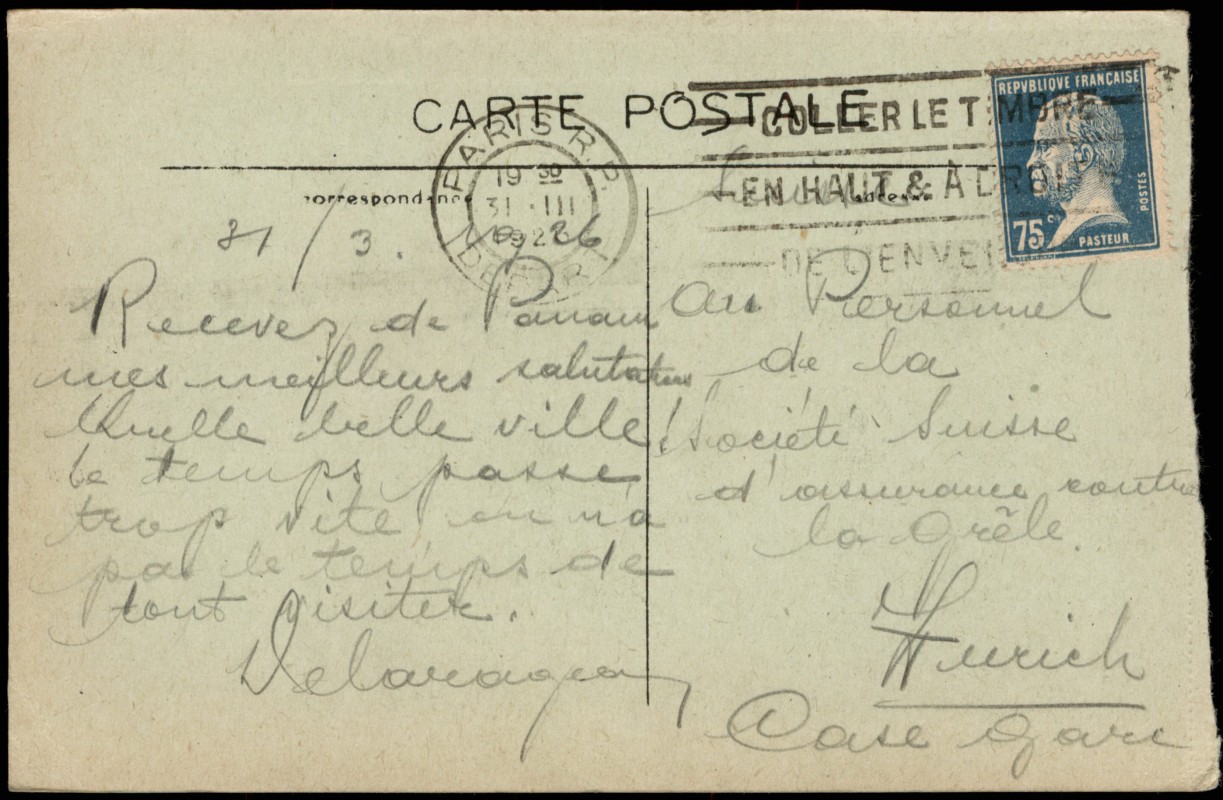 CARTE POSTALE
COLLER LE TIMBRE
EN HAUT & À DROITE
DE L'ENVE
PARIS R.P.
19 30
31 · III
1926
DEPART
REPUBLIQUE FRANÇAISE
POSTES
75c
PASTEUR
correspondance
adresse
31/3. 1926
Recevez de Panam
mes meilleurs salutations
Quelle belle ville!
le temps passe
trop vite, on n'a
pas le temps de
tout visiter.
Suisse
Au Personnel
de la
Société Suisse
d'assurance contre
la Grêle.
Zurich
Case Gare